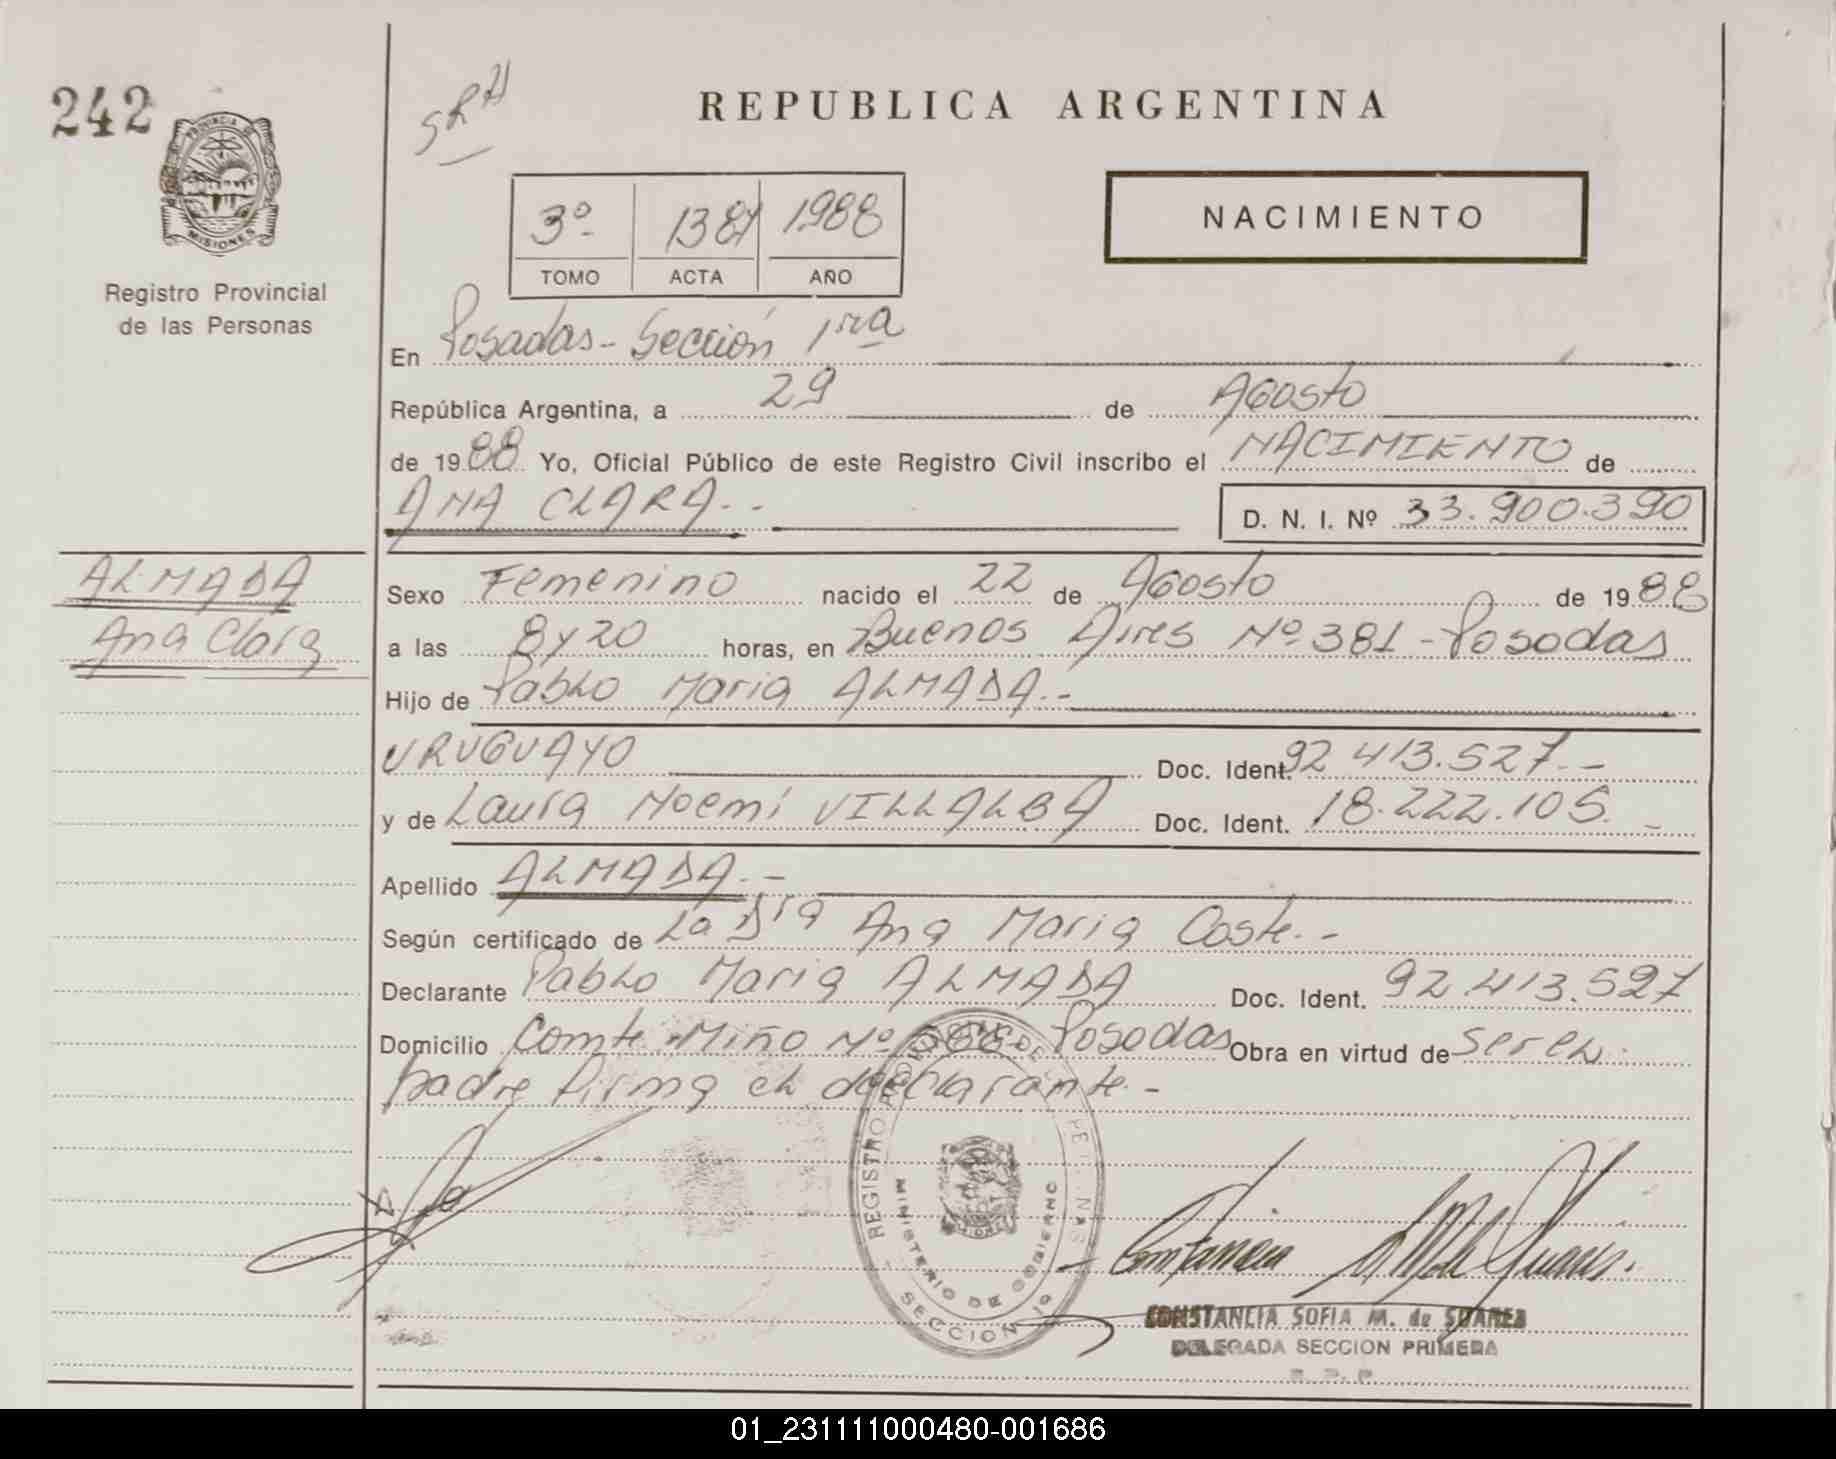 242
SRH
REPUBLICA ARGENTINA
PROVINCIA DE
MISIONES
Registro Provincial
de las Personas
3º 1381 1988
TOMO ACTA AÑO
NACIMIENTO
En Posadas - Sección 1ra
República Argentina, a 29 de Agosto
de 1988 Yo, Oficial Público de este Registro Civil inscribo el NACIMIENTO de
ANA CLARA.--
D. N. I. Nº 33.900.390
ALMADA
Ana Clara
Sexo Femenino nacido el 22 de Agosto de 1988
a las 8 y 20 horas, en Buenos Aires Nº 381 - Posadas
Hijo de Pablo Maria ALMADA.-
URUGUAYO Doc. Ident. 92 413.527.-
y de Laura Noemí VILLALBA Doc. Ident. 18.222.105. -
Apellido ALMADA.-
Según certificado de La Dra Ana Maria Coste.-
Declarante Pablo Maria ALMADA Doc. Ident. 92 413.527
Domicilio Comte Miño Nº Posadas Obra en virtud de ser el
padre firma el declarante.-
REGISTRO
MINISTERIO DE GOBIERNO
SECCION 1º
CONSTANCIA SOFIA M. de SUAREZ
DELEGADA SECCION PRIMERA
01_231111000480-001686